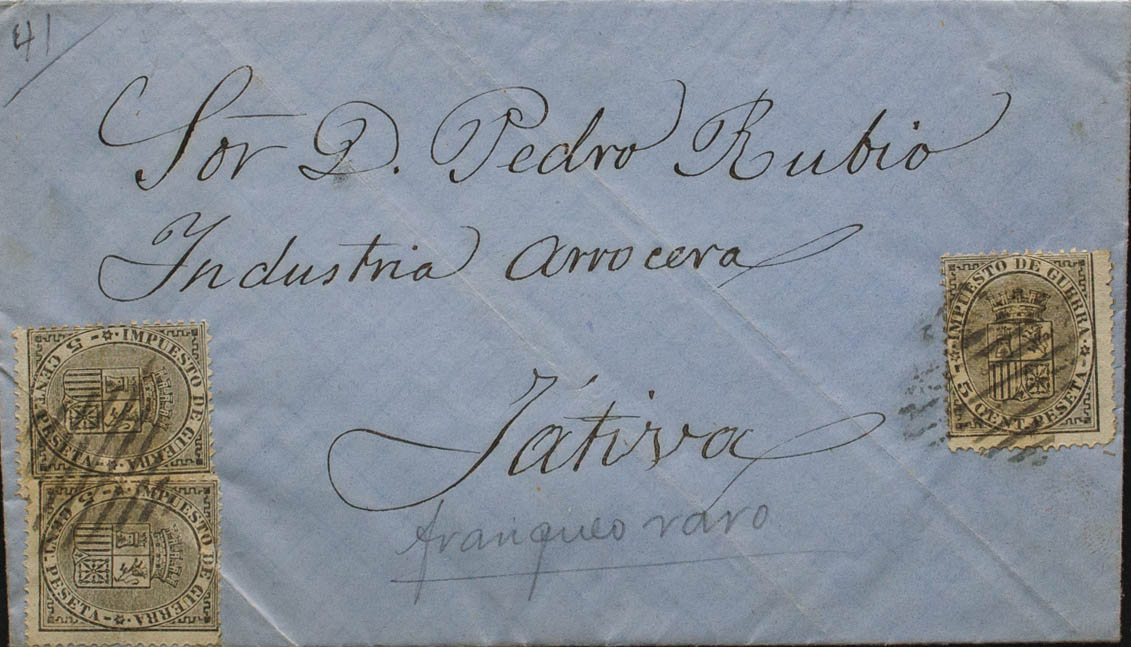 41
Sor D. Pedro Rubio
Industria Arrocera
Játiva
franqueo raro
IMPUESTO DE GUERRA
5 CENT. PESETA
IMPUESTO DE GUERRA
5 CENT. PESETA
IMPUESTO DE GUERRA
5 CENT. PESETA